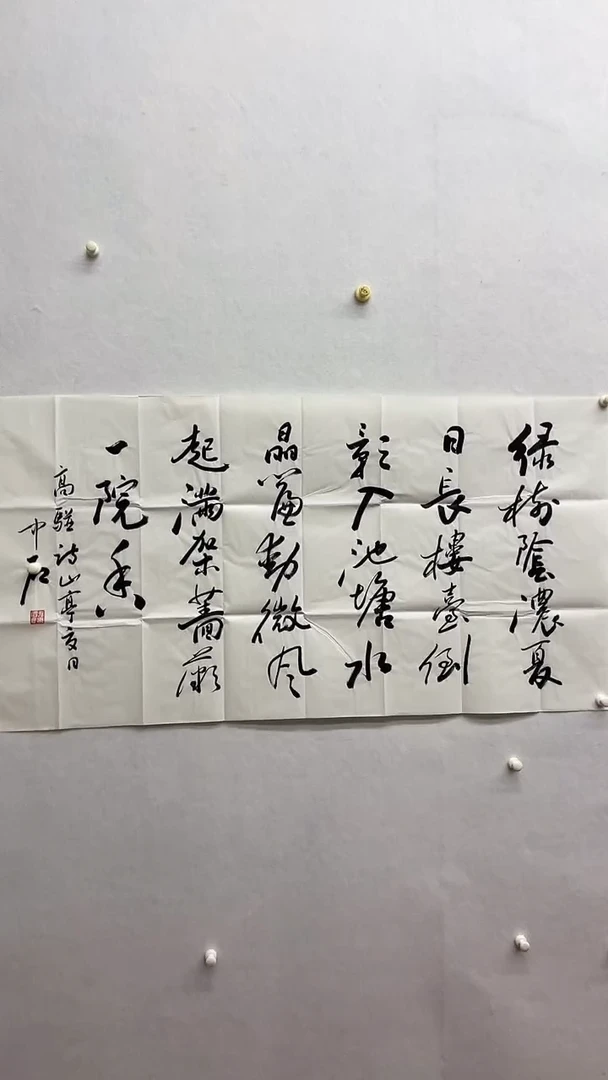 绿树陰濃夏
日長樓臺倒
影入池塘水
晶簾動微风
起满架蔷薇
一院香
高骈诗山亭夏日
中石